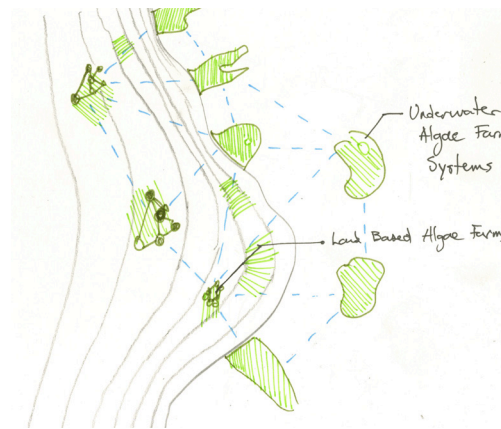 Underwater
Algae Far
Systems
Land Based Algae Farm